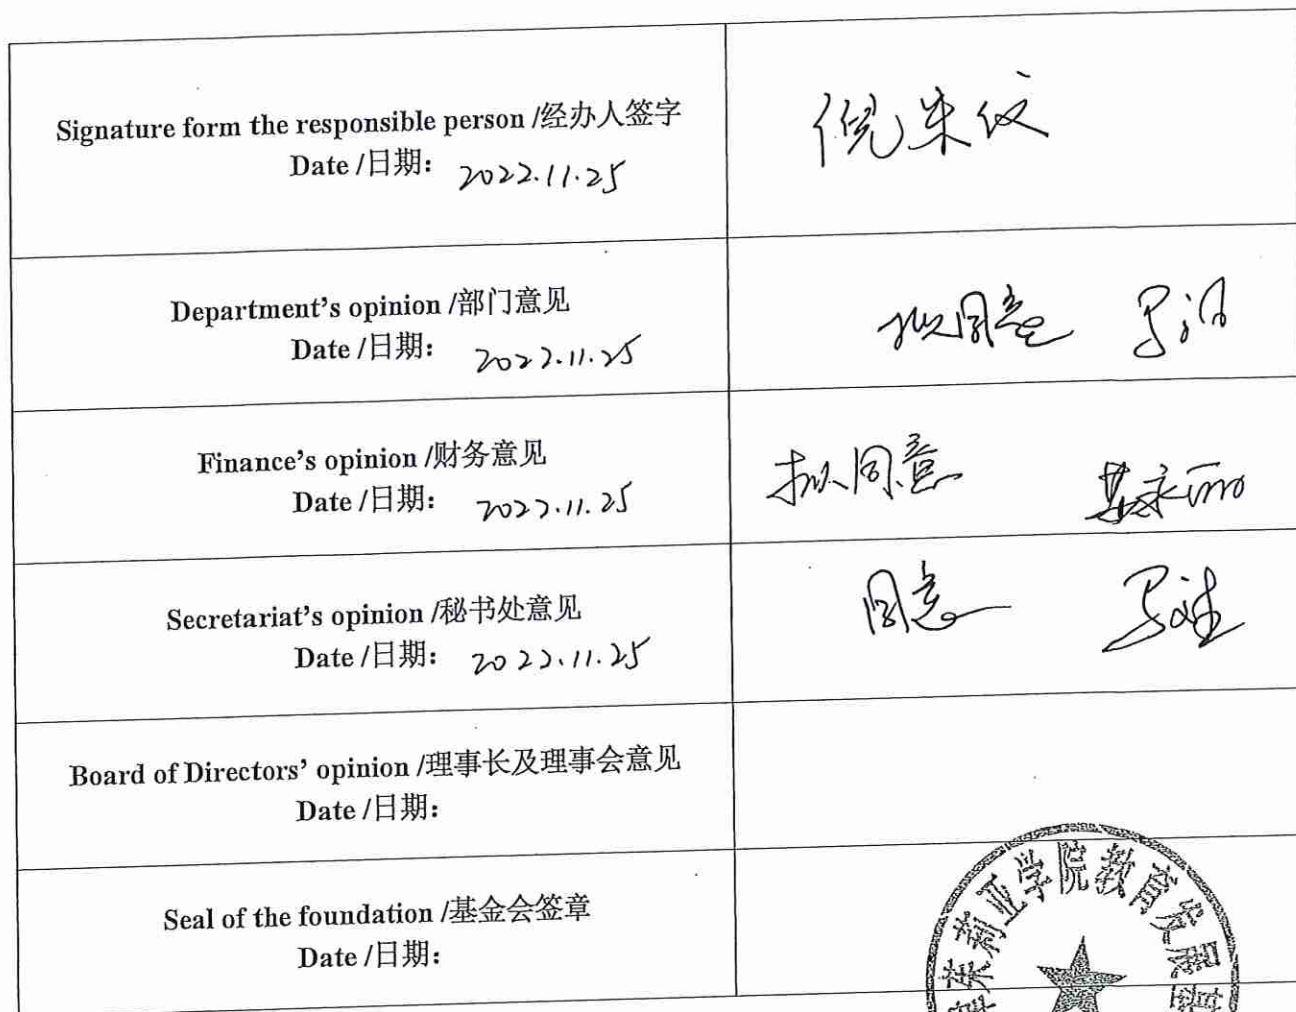 Signature form the responsible person /经办人签字
Date /日期： 2022.11.25
倪朱仪
Department's opinion /部门意见
Date /日期： 2022.11.25
拟同意
Finance's opinion /财务意见
Date /日期： 2022.11.25
拟同意
Secretariat's opinion /秘书处意见
Date /日期： 2022.11.25
同意
Board of Directors' opinion /理事长及理事会意见
Date /日期：
Seal of the foundation /基金会签章
Date /日期：
茉莉亚学院教育发展